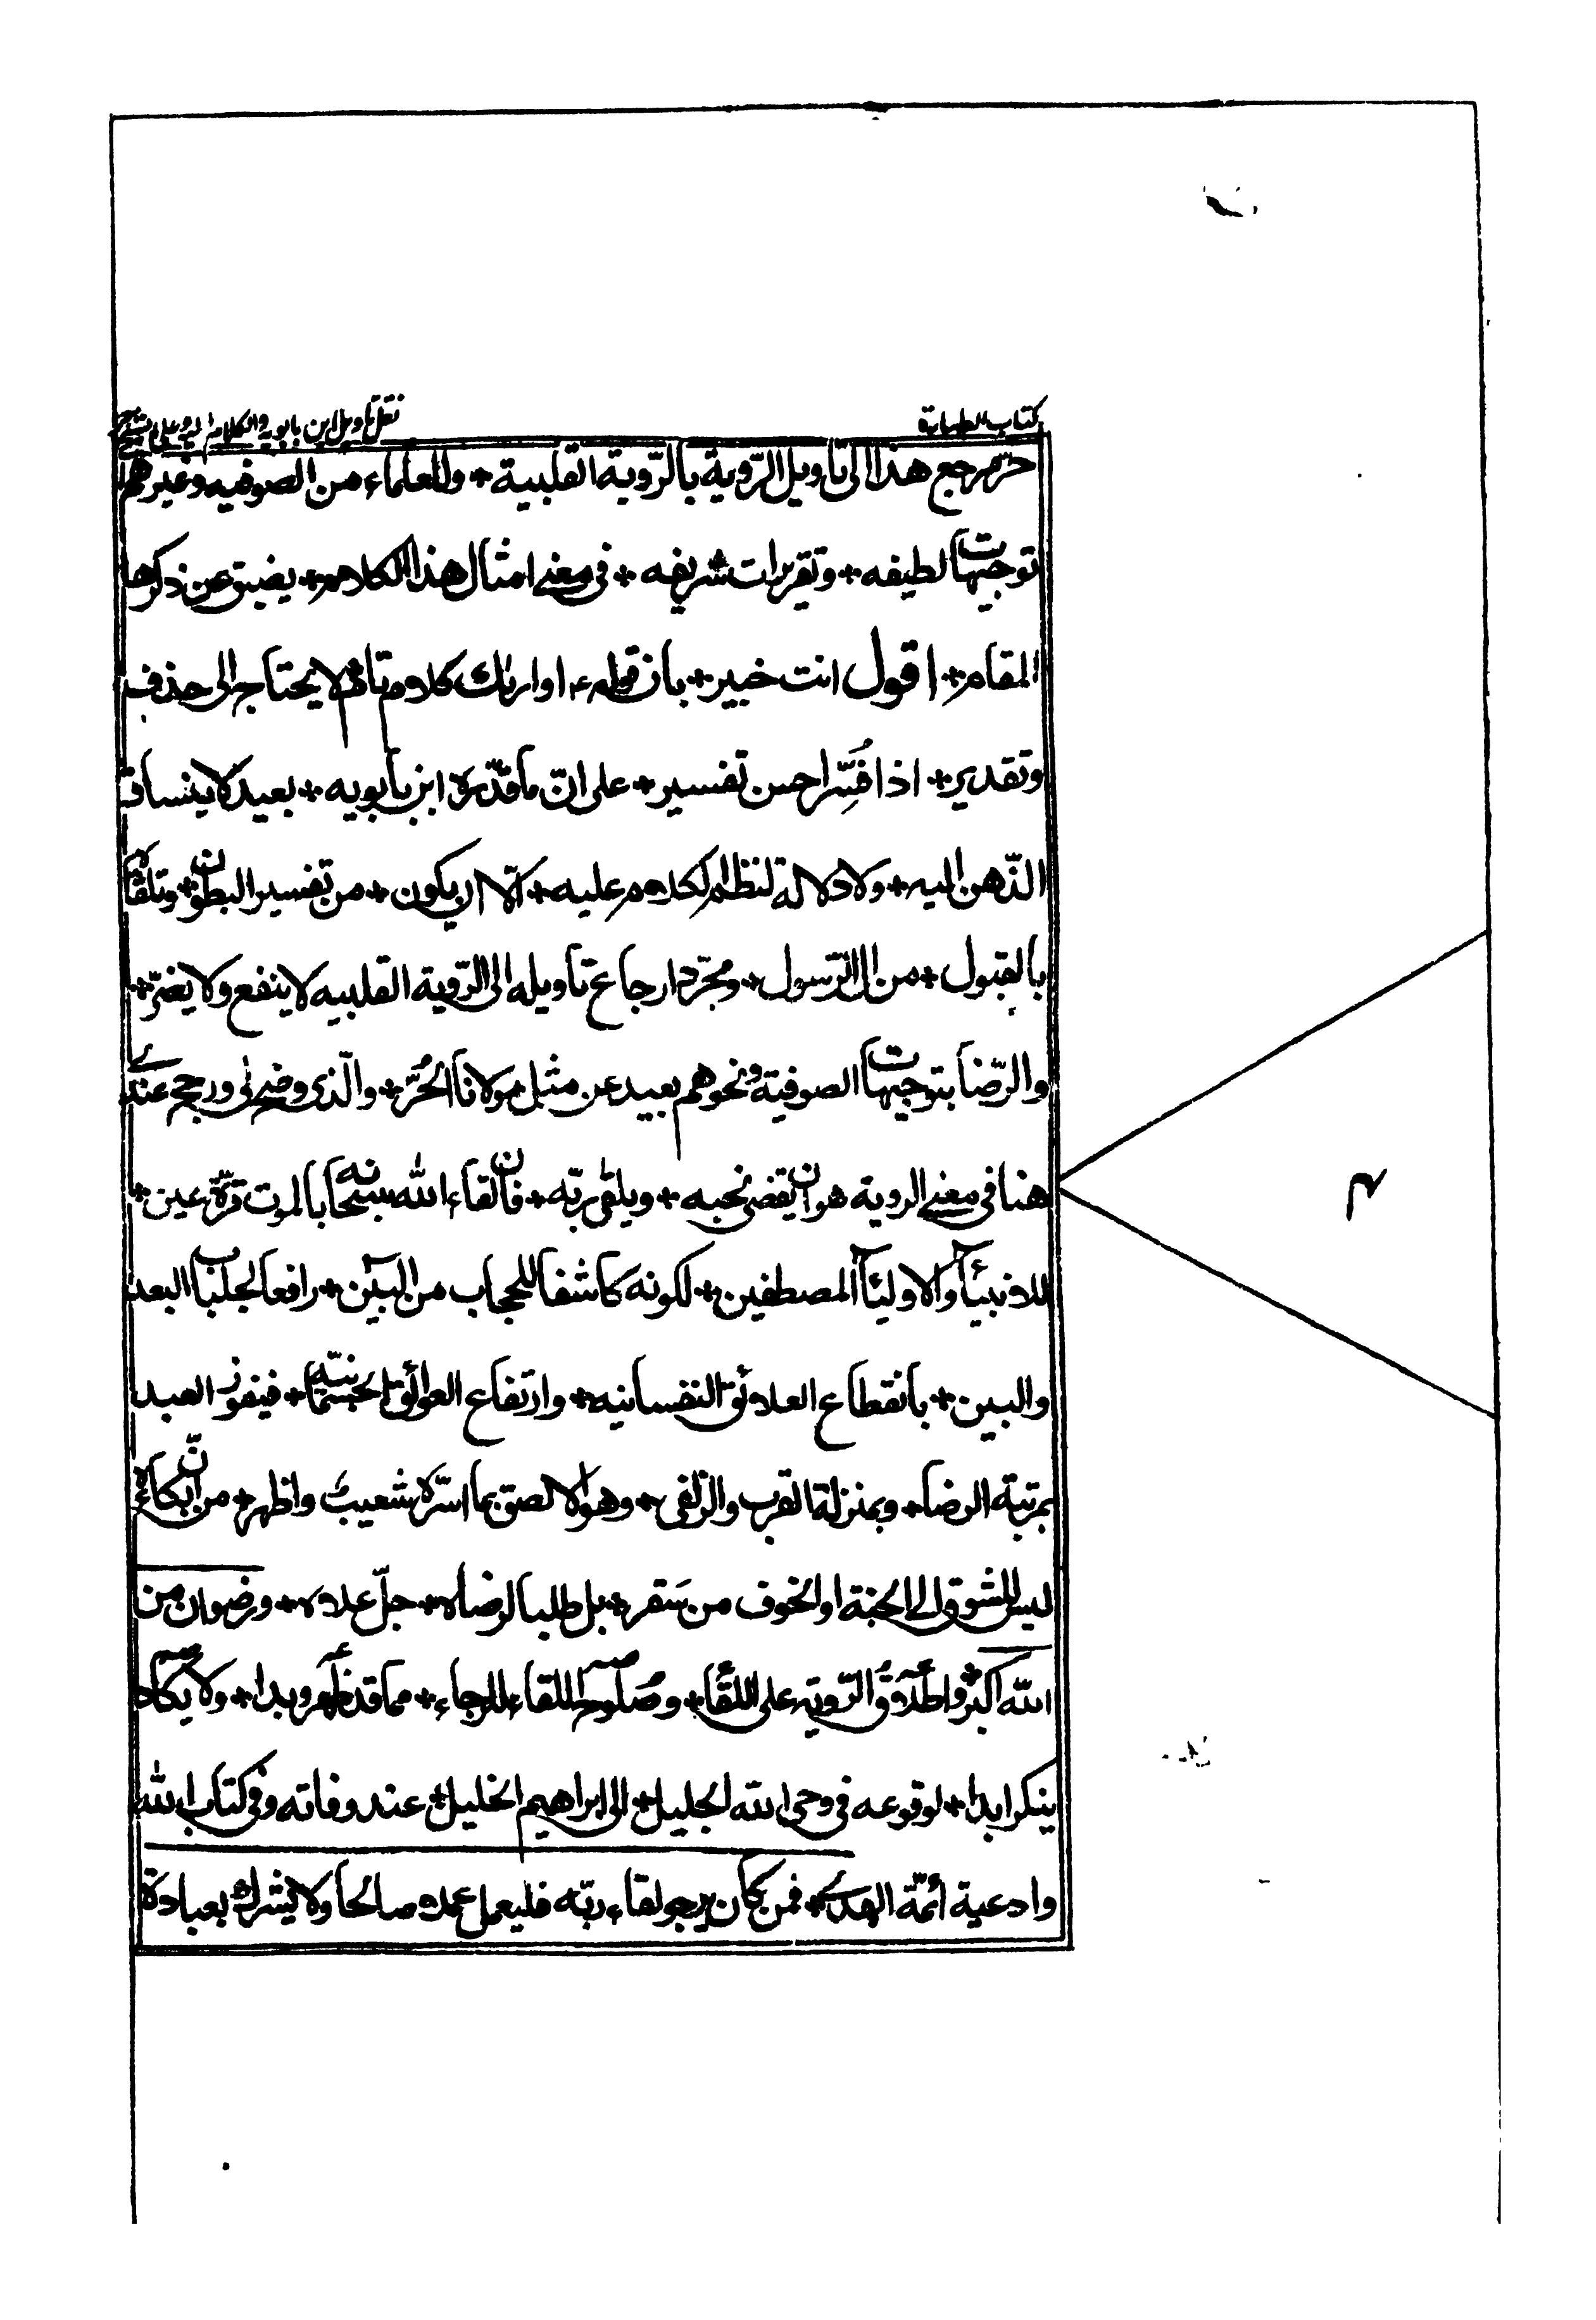 كتاب الطهارة
نقل تاويل ابن بابويه والكلام
حرّ مرجع هذا الى تاويل الرّوية بالرّوية القلبية * وللعلماء من الصوفيه وغيرهم
توجيهات لطيفه * وتقريرات شريفه * فى معنے امثال هذا الكلام * يضيق عن ذكرها
المقام * اقول انت خبير * بان قوله ع او اراك كلام تام لا يحتاج الى حذف
وتقدير * اذا فُسِّر احسن تفسير * على انّ ما قدّره ابن بابويه * بعيد لا ينساق
الذّهن اليه * ولا دلالة لنظم الكلام عليه * الّا ان يكون * من تفسير البطون * وتلقاه
بالقبول * من ال الرّسول * ومجرّد ارجاع تاويله الى الرّوية القلبيه لا ينفع ولا يضرّ *
والرّضا بتوجيهات الصوفية ونحوهم بعيد عن مثل مولانا الحُرّ * والّذى وضح لى ورجح عندے
هنا فى معنے الروية هو ان يقضى نحبه * ويلقى ربّه * فان لقاء الله سبحانه بالموت قرّة عين *
للانبيآء والاوليآء المصطفين * لكونه كاشفا للحجاب من البين * رافعا لجلباب البعد
والبين * بانقطاع العلائق النفسانيه * وارتفاع العوائق الجسمانيّه * فيفوز العبد
بمرتبة الرضا * وبمنزلة القرب والزلفى * وهو الالصق بما اسرّه شعيب واظهر * من انّ بكاءه
ليس للشوق الى الجنة او الخوف من سَقر * بل طلبا لرضاه * جلّ علاه * ورضوان من
الله اكبر * واطلاق الرّوية على اللقاء * وصلوح اللقاء للرجاء * مما قد ظهر وبدا * ولا يكاد
ينكر ابدا * لوقوعه فى وحى الله الجليل * الى ابراهيم الخليل * عند وفاته وفى كتاب الله
وادعية ائمّة الهدے * فمن كان يرجو لقاء ربّه فليعمل عملا صالحا ولا يشرك بعبادة